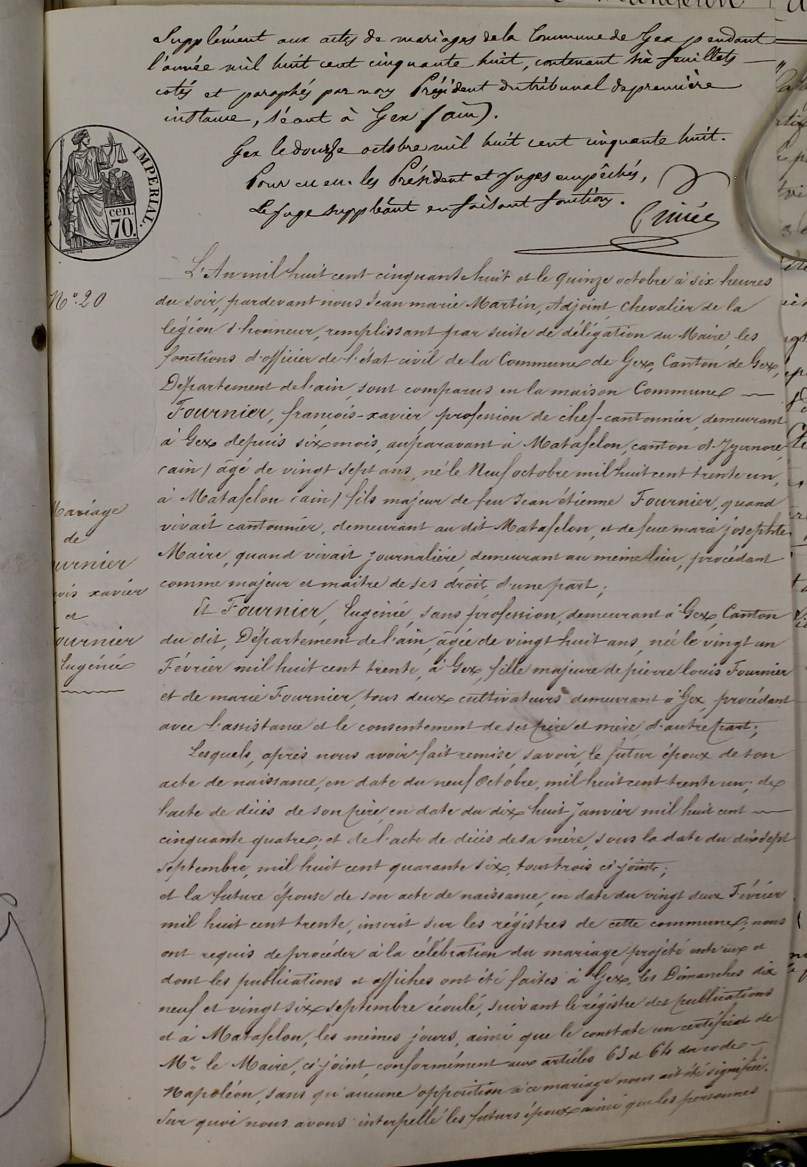 Supplément aux actes de mariages de la Commune de Gex pendant
l'année mil huit cent cinquante huit, contenant six feuillets
cotés et paraphés par nous Président du tribunal de première
instance, séant à Gex (ain).
Gex le douze octobre mil huit cent cinquante huit.
Pour cu eu. les Président et Juges empêchés,
Le Juge suppléant en faisant fonctions.
IMPERIAL.
cen.
70.
N° 20
L'An mil huit cent cinquante huit et le quinze octobre à six heures
du soir, pardevant nous Jean marie Martin, Adjoint, Chevalier de la
légion d'honneur, remplissant par suite de délégation du Maire, les
fonctions d'officier de l'état civil de la Commune de Gex, Canton de Gex,
Département de l'ain, sont comparus en la maison Commune
Fournier, françois-xavier, profession de chef-cantonnier, demeurant
à Gex depuis six mois, auparavant à Matafelon, canton d'Izernore
(ain) âgé de vingt sept ans, né le Neuf octobre mil huit cent trente un,
à Matafelon (ain) fils majeur de feu Jean étienne Fournier, quand
vivait cantonnier, demeurant au dit Matafelon, et de feue marie josephte
Maire, quand vivait journalière, demeurant au même lieu, procédant
comme majeur et maître de ses droits, d'une part;
Mariage
de
urnier
ois xavier
et
ournier
Eugénie
Et Fournier, Eugénie, sans profession, demeurant à Gex, Canton
du dit, Département de l'ain, âgée de vingt huit ans, née le vingt un
Février mil huit cent trente, à Gex, fille majeure de pierre louis Fournier
et de marie Fournier, tous deux cultivateurs demeurant à Gex, procédant
avec l'assistance et le consentement de ses père et mère, d'autre part;
Lesquels, après nous avoir fait remise, savoir, le futur époux de son
acte de naissance, en date du neuf Octobre, mil huit cent trente un; de
l'acte de décès de son père, en date du dix huit Janvier mil huit cent
cinquante quatre, et de l'acte de décès de sa mère, sous la date du dix sept
Septembre, mil huit cent quarante six, tous trois ci-joints;
et la future épouse de son acte de naissance, en date du vingt deux Février
mil huit cent trente, inscrit sur les régistres de cette commune; nous
ont requis de procéder à la célébration du mariage projeté entr'eux et
dont les publications et affiches ont été faites à Gex, les Dimanches dix
neuf et vingt six septembre écoulé, suivant le régistre des publications
et à Matafelon, les mêmes jours, ainsi que le constate un certificat de
Mr. le Maire, ci joint, conformément aux articles 63 et 64 du code
Napoléon, sans qu'aucune opposition à ce mariage nous ait été signifié.
Sur quoi nous avons interpellé les futurs époux ainsi que les personnes